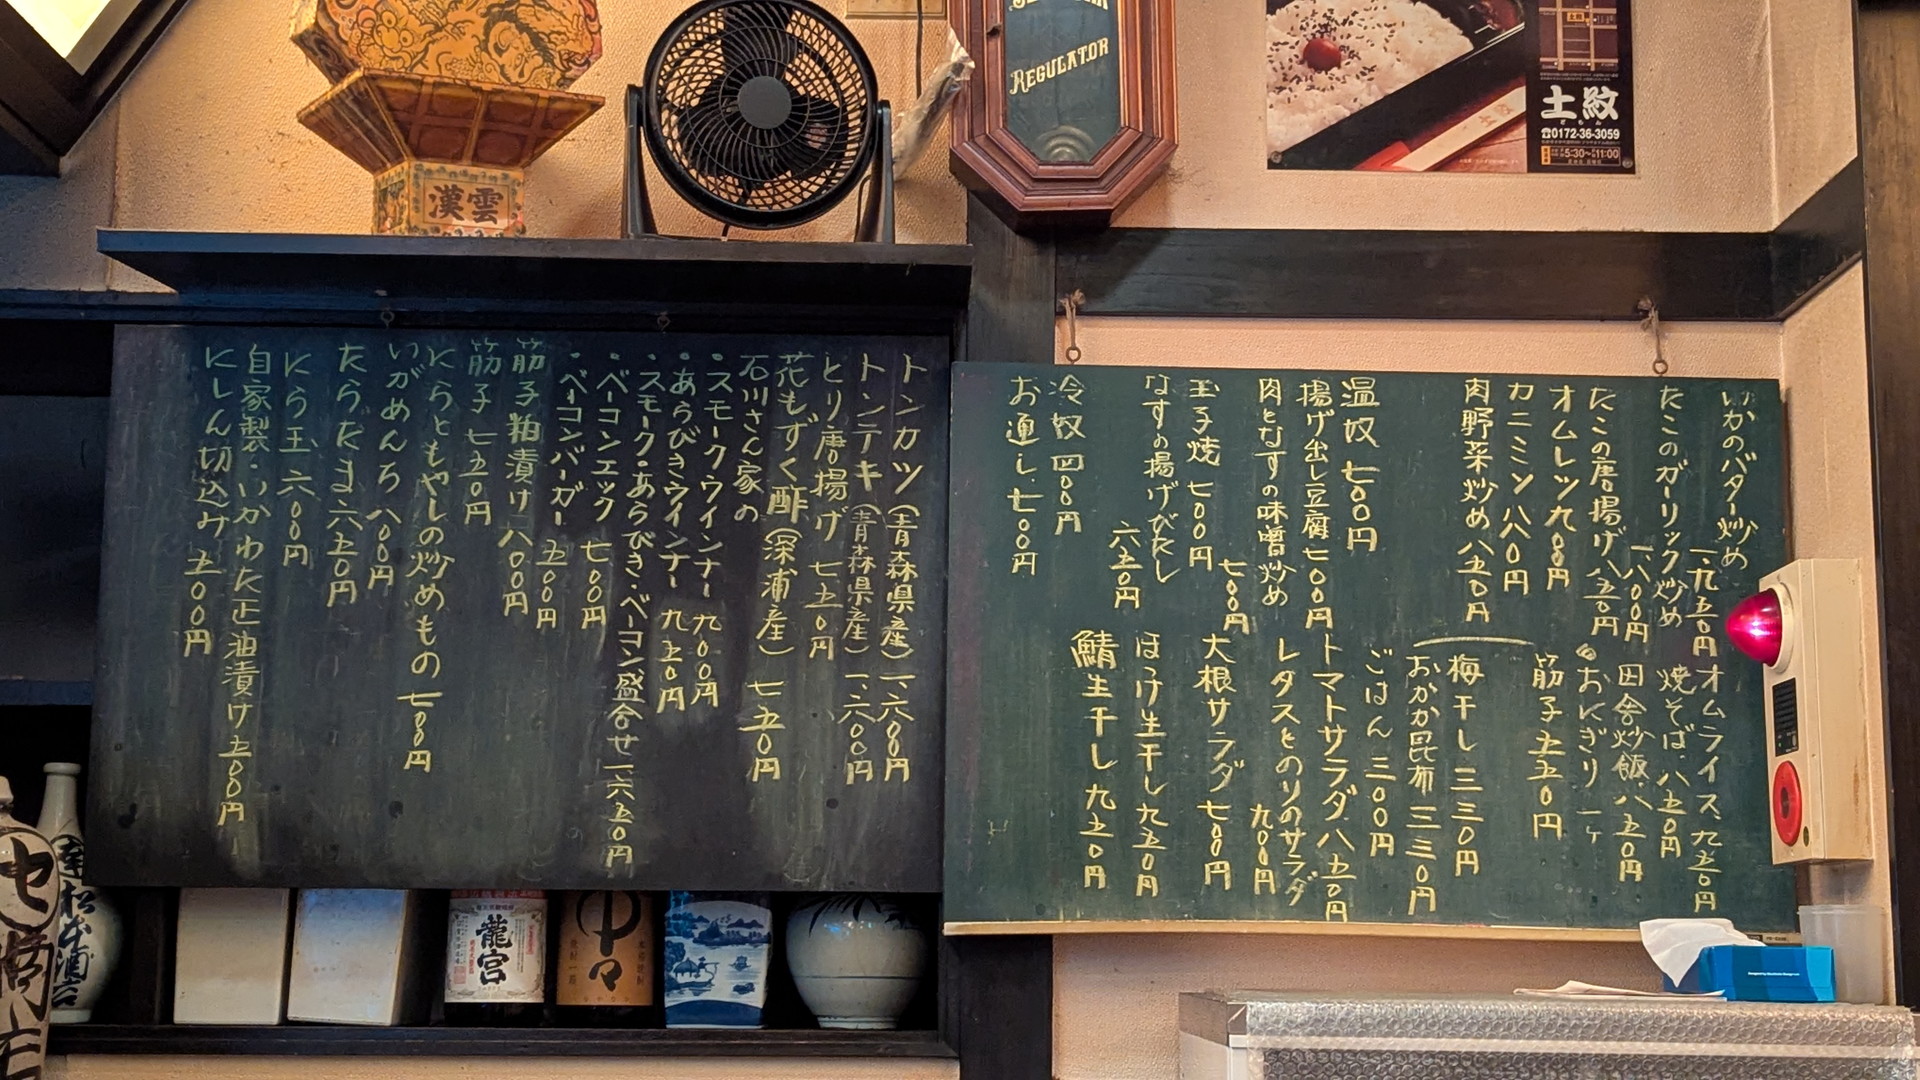 漢雲
REGULATOR
土紋
どもん
☎0172-36-3059
5:30〜11:00
トンカツ(青森県産)一、六〇〇円
トンテキ(青森県産)一、六〇〇円
とり唐揚げ 七五〇円
花もずく酢(深浦産) 七五〇円
石川さん家の
・スモークウインナー 九〇〇円
・あらびきウインナー 九五〇円
・スモーク・あらびき・ベーコン盛合せ 一六五〇円
・ベーコンエッグ 七〇〇円
・ベーコンバーガー 五〇〇円
筋子粕漬け 八〇〇円
筋子 七五〇円
にらともやしの炒めもの 七〇〇円
いがめんち 八〇〇円
たらたま 六五〇円
にら玉 六〇〇円
自家製・いかわた正油漬け 五〇〇円
にしん切込み 五〇〇円
いかのバター炒め
一、九五〇円
たこのガーリック炒め
一、八〇〇円
たこの唐揚げ 八五〇円
オムレツ 九〇〇円
カニミソ 八八〇円
肉野菜炒め 八五〇円
温奴 七〇〇円
揚げ出し豆腐 七〇〇円
肉となすの味噌炒め
七〇〇円
玉子焼 七〇〇円
なすの揚げびたし
六五〇円
冷奴 四〇〇円
お通し 七〇〇円
オムライス 九五〇円
焼そば 八五〇円
田舎炒飯 八五〇円
おにぎり 一ヶ
筋子 五五〇円
梅干し 三三〇円
おかか昆布 三三〇円
ごはん 三〇〇円
トマトサラダ 八五〇円
レタスとのりのサラダ
九〇〇円
大根サラダ 七〇〇円
ほっけ生干し 九五〇円
鯖生干し 九五〇円
龍宮